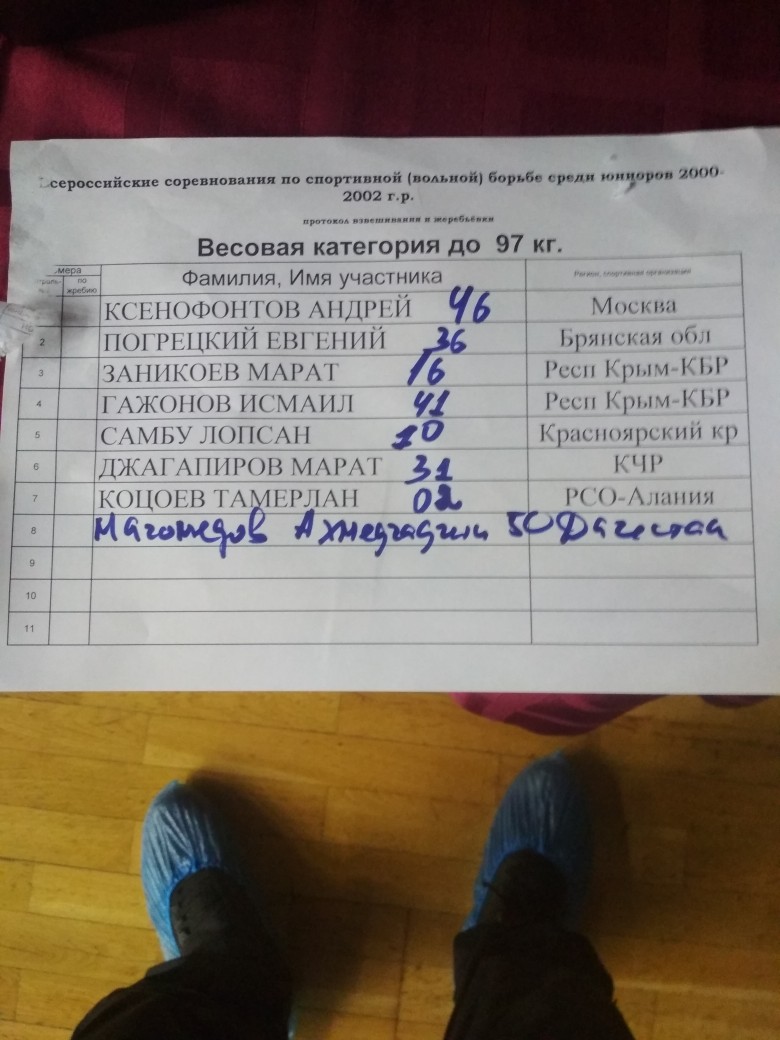 сероссийские соревнования по спортивной (вольной) борьбе среди юниоров 2000-
2002 г.р.
протокол взвешивания и жеребьёвки
Весовая категория до 97 кг.
мера Фамилия, Имя участника Регион, спортивная организация
по
жребию
КСЕНОФОНТОВ АНДРЕЙ 46 Москва
2 ПОГРЕЦКИЙ ЕВГЕНИЙ 36 Брянская обл
3 ЗАНИКОЕВ МАРАТ 16 Респ Крым-КБР
4 ГАЖОНОВ ИСМАИЛ 41 Респ Крым-КБР
5 САМБУ ЛОПСАН 10 Красноярский кр
6 ДЖАГАПИРОВ МАРАТ 31 КЧР
7 КОЦОЕВ ТАМЕРЛАН 02 РСО-Алания
8 Магомедов 50 Дагестан
9
10
11